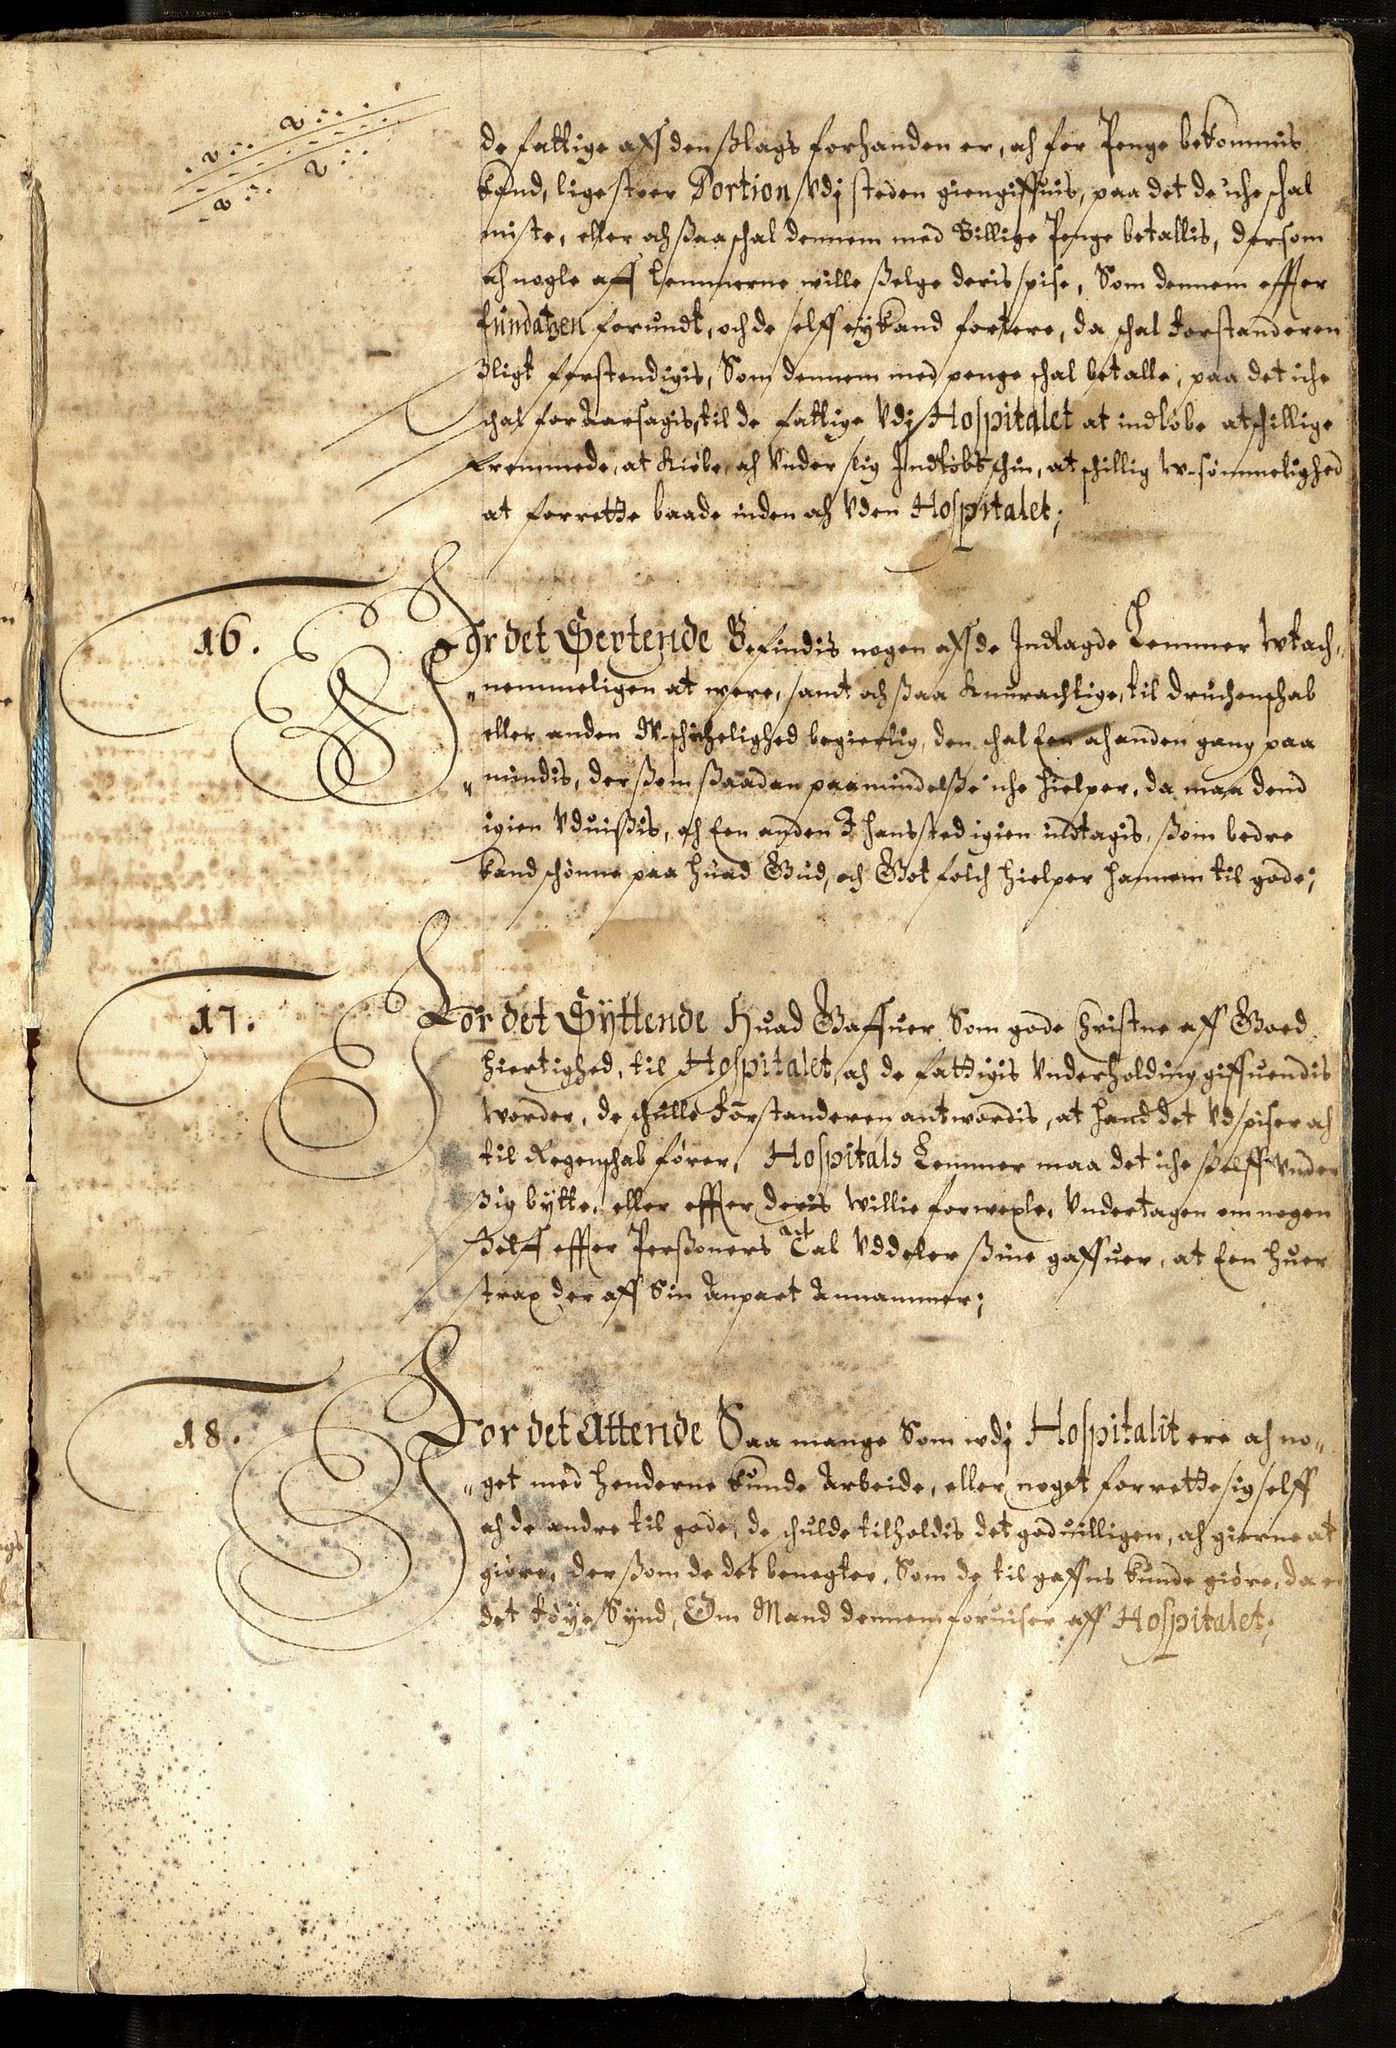 de fattige aff den ßlags forhanden er, och for Penge bekommis
kand, lige stoer Portion Vdj steden giengiffuis, paa det de iche schal
miste, eller och ßaa schal dennem med Billige Penge betallis, dersom
och nogle aff Lemmerne wille ßelge deris spise, Som dennem effter
fundatzen forundt, och de selff ey kand fortere, da schal forstanderen
ßligt forstendigis, Som dennem med penge schal betalle, paa det iche
schal foraarsagis, til de fattige Vdj Hospitalet at indløbe atschillige
fremmede, at Kiøbe, och Vnder slig Indkiøbs schin, atschillig W-sømmelighed
at forrette baade inden och Vden Hospitalet;
16. For det Sextende Befindis nogen aff de Indlagde Lemmer Wtach-
nemmeligen at were, samt och ßaa Knurachtige, til druchenschab
eller anden W-schichelighed begierlig, den schal Een och anden gang paa
mindis, der ßom ßaadan paamindelße iche hielper, da maa dend
igien Vduißis, och Een anden I hans sted igien indtagis, ßom bedre
kand schønne paa huad Gud, och Got folch hielper hannem til gode;
17. For det Syttende Huad Gaffuer Som gode Christne aff Goed
hiertighed, til Hospitalet, och de fattigis Vnderholding giffuendis
worder, de schulle forstanderen antwordis, at hand det Vdspiser och
til Regenschab fører, Hospitals Lemmer maa det iche ßelff Vnder
ßig bytte, eller effter deris Willie forwexle, Vndertagen om nogen
ßelff effter Perßoners Tal Vddeler ßine gaffuer, at Een huer
strax der aff Sin Anpart Annammer;
18. For det Attende Saa mange Som wdj Hospitalit ere och no-
get med henderne kunde Arbeide, eller noget forrette sig selff
och de andre til gode, de schulde tilholdis det goduilligen, och gierne at
giøre, der ßom de det benegter, Som de til gaffns kunde giøre, da er
det føye Synd, Om Mand dennem foruiser aff Hospitalet;